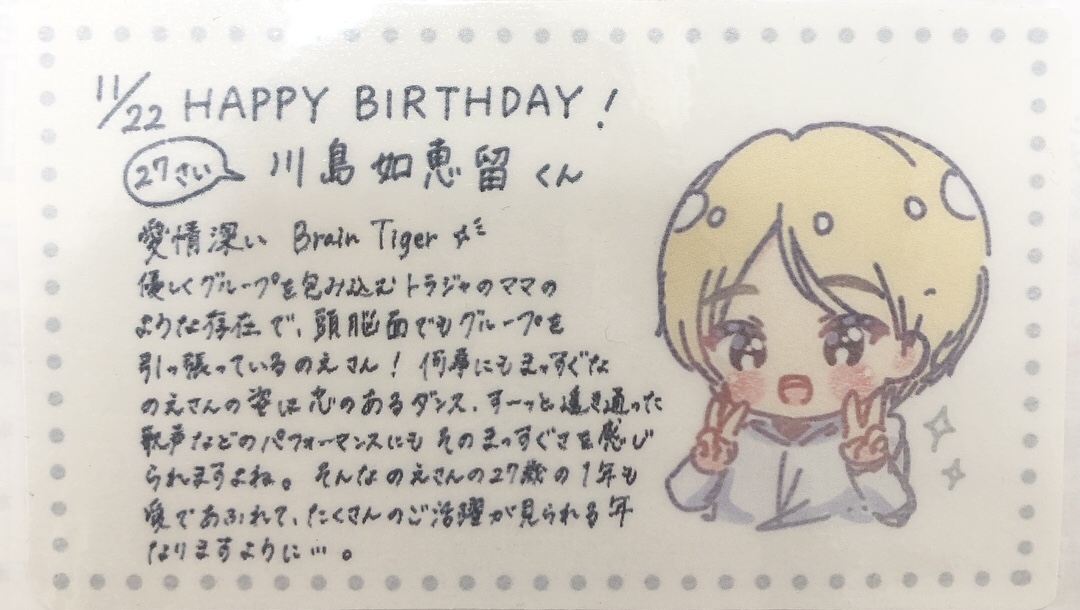 11/22 HAPPY BIRTHDAY!
27さい 川島如恵留くん
愛情深い Brain Tiger
優しくグループを包み込むトラジャのママの
ような存在で、頭脳面でもグループを
引っ張っているのえさん！ 何事にもまっすぐな
のえさんの姿は芯のあるダンス、すーっと透き通った
歌声などのパフォーマンスにもそのまっすぐさを感じ
られますよね。そんなのえさんの27歳の1年も
愛であふれて、たくさんのご活躍が見られる年
なりますように…。